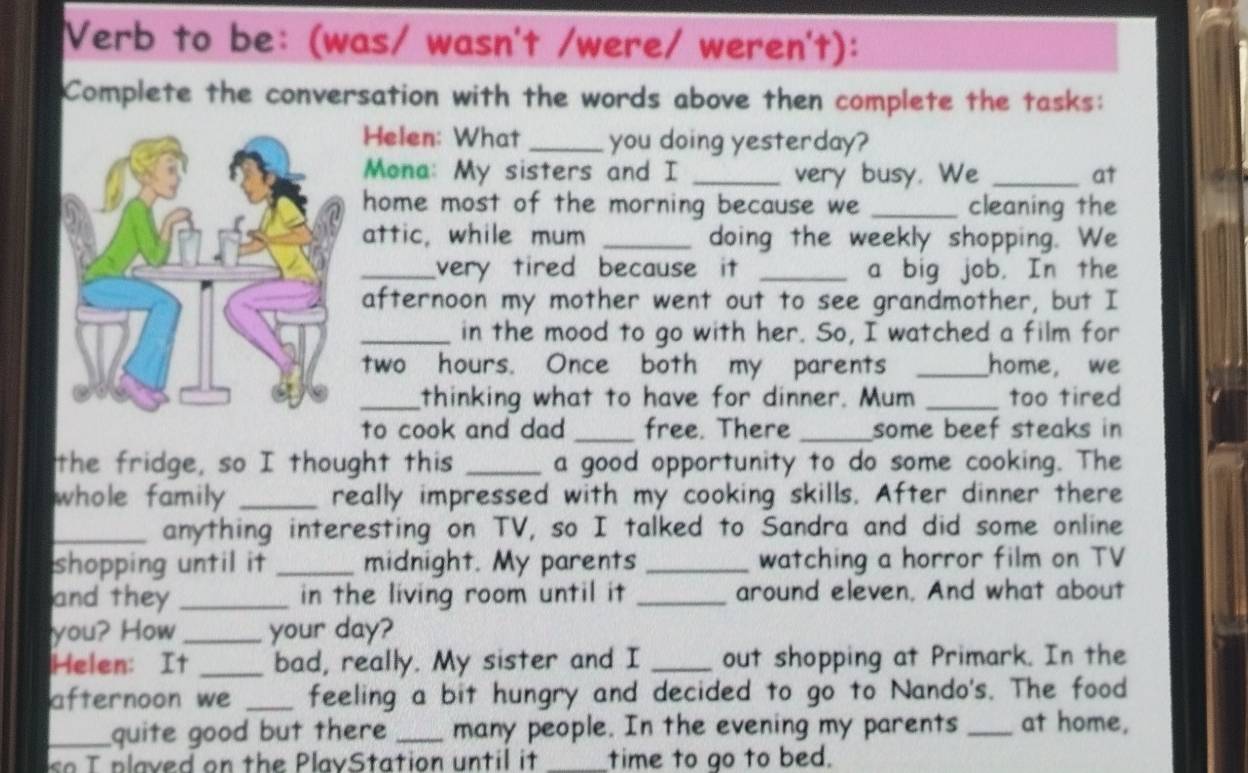 Verb to be: (was/ wasn't /were/ weren't):
Complete the conversation with the words above then complete the tasks:
Helen: What ______ you doing yesterday?
Mona: My sisters and I _______ very busy. We _______ at
home most of the morning because we _______ cleaning the
attic, while mum _______ doing the weekly shopping. We
______very tired because it _______ a big job. In the
afternoon my mother went out to see grandmother, but I
_______ in the mood to go with her. So, I watched a film for
two hours. Once both my parents ______home, we
_____thinking what to have for dinner. Mum ______ too tired
to cook and dad _____ free. There ______some beef steaks in
the fridge, so I thought this ______ a good opportunity to do some cooking. The
whole family ______ really impressed with my cooking skills. After dinner there
_______ anything interesting on TV, so I talked to Sandra and did some online
shopping until it ______ midnight. My parents ________ watching a horror film on TV
and they _________ in the living room until it _______ around eleven. And what about
you? How ______ your day?
Helen: It _____ bad, really. My sister and I _____ out shopping at Primark. In the
afternoon we ____ feeling a bit hungry and decided to go to Nando's. The food
_____quite good but there ____ many people. In the evening my parents ____ at home,
so I played on the PlayStation until it _____time to go to bed.